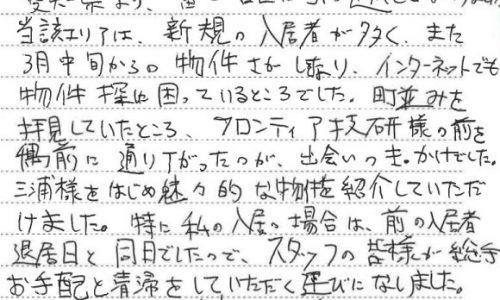 当該エリアは、新規の入居者が多く、また
3月中旬からの物件さがしなり、インターネットでも
物件探しに困っているところでした。町並みを
拝見していたところ、フロンティア技研様の前を
偶前に通り下がったのが、出会いのきっかけでした。
三浦様をはじめ魅々的な物件を紹介していただ
けました。特に私の入居の場合は、前の入居者
退居日と同日でしたので、スタッフの皆様が総手
お手配と清掃をしていただく運びになしました。